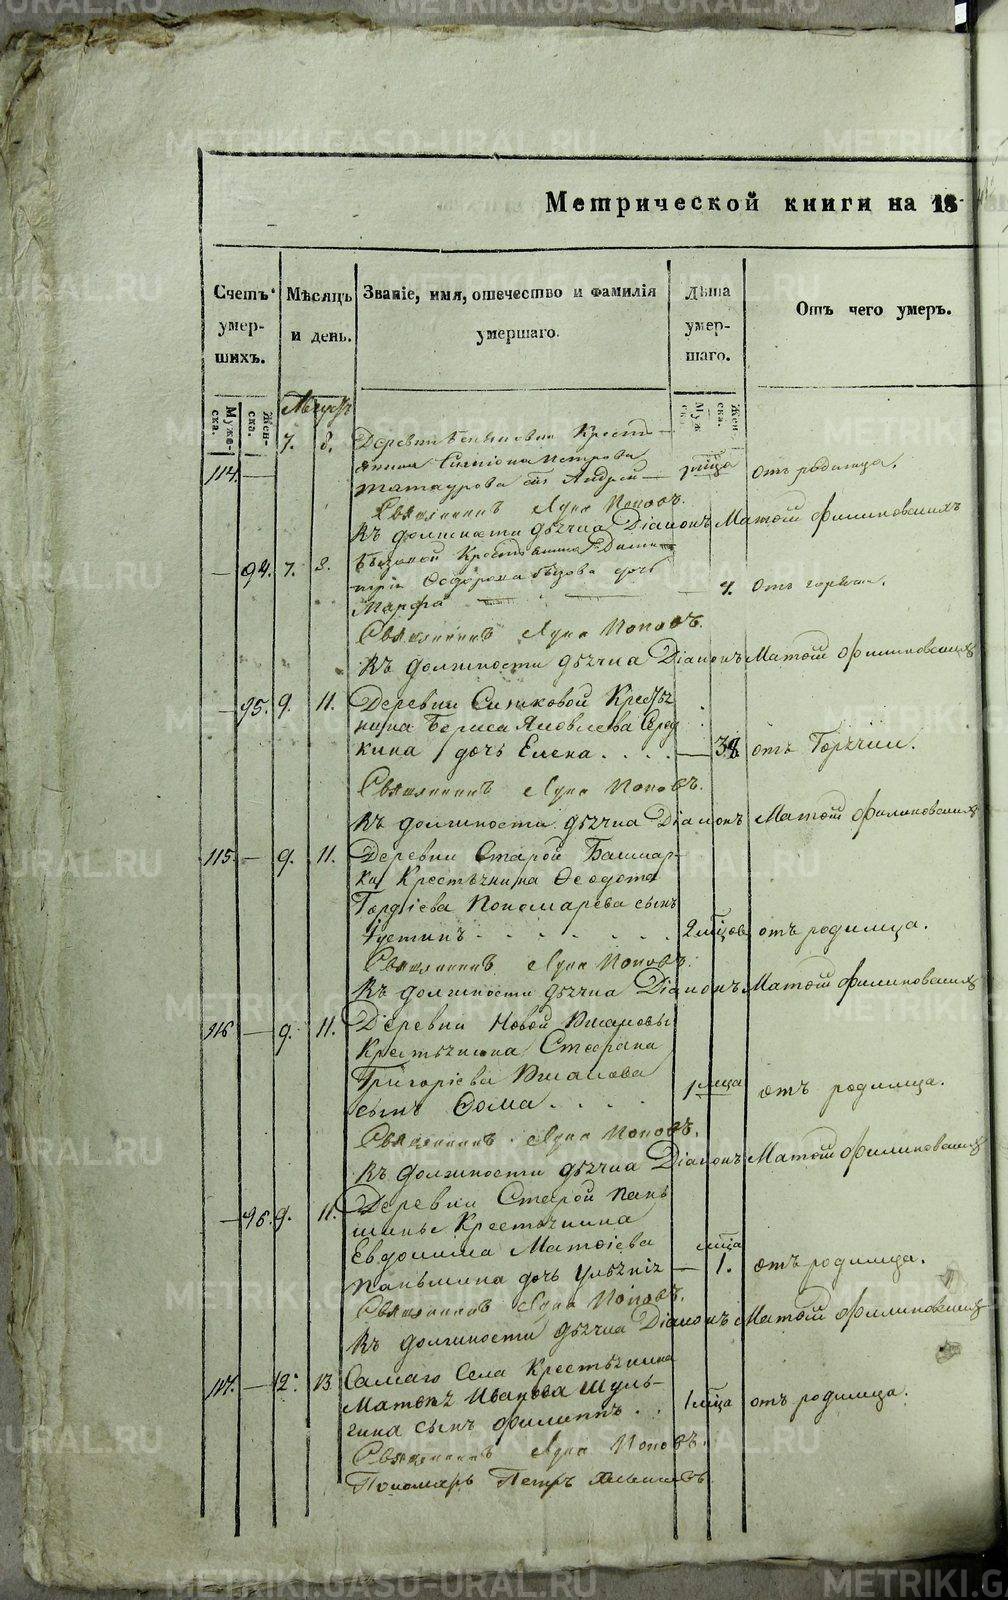 Метрической книги на 18
Счетъ умер- шихъ.
Мѣсяцъ и день.
Званіе, имя, отечество и фамилія умершаго.
Лѣта умер- шаго.
Отъ чего умеръ.
Муже- ска.
Жен- ска.
Жен- ска.
Августъ
7. 8. Кресть-
янина Симіона Петрова
114. — сынъ Андрей — отъ родимца.
Священникъ Лука Поповъ.
Въ должности дьячка Діаконъ Матөій Филиновскихъ
— 94. 7. 8. Крестьянина Дими-
трія Ѳедорова дочь
Марфа — 4. отъ горячки.
Священникъ Лука Поповъ.
Въ должности дьячка Діаконъ Матөій Филиновскихъ
— 95. 9. 11. Деревни Синяковой Крестья-
нина Бориса Яковлева
кина дочь Елена . . . . — 38. отъ Горячки.
Священникъ Лука Поповъ.
Въ должности дьячка Діаконъ Матөій Филиновскихъ
115. — 9. 11. Деревни Старой Башкар-
ки Крестьянина Ѳеодота
Гордіева Пономарева сынъ
Іустинъ 2 мѣсяцовъ отъ родимца.
Священникъ Лука Поповъ.
Въ должности дьячка Діаконъ Матөій Филиновскихъ
116. — 9. 11. Деревни Новой
Крестьянина Стефана
Григоріева
сынъ Ѳома . . . . 1 мѣсяца отъ родимца.
Священникъ Лука Поповъ.
Въ должности дьячка Діаконъ Матөій Филиновскихъ
— 96. 9. 11. Деревни Старой Пань-
шины Крестьянина
Евдокима Матөіева мѣсяца
Паньшина дочь — 1. отъ родимца.
Священникъ Лука Поповъ.
Въ должности дьячка Діаконъ Матөій Филиновскихъ
117. — 12. 13 Самаго Села Крестьянина
Матөея Иванова Шуль-
гина сынъ Филиппъ . . 1 мѣсяца отъ родимца.
Священникъ Лука Поповъ.
Пономарь Петръ
METRIKI.GASO-URAL.RU